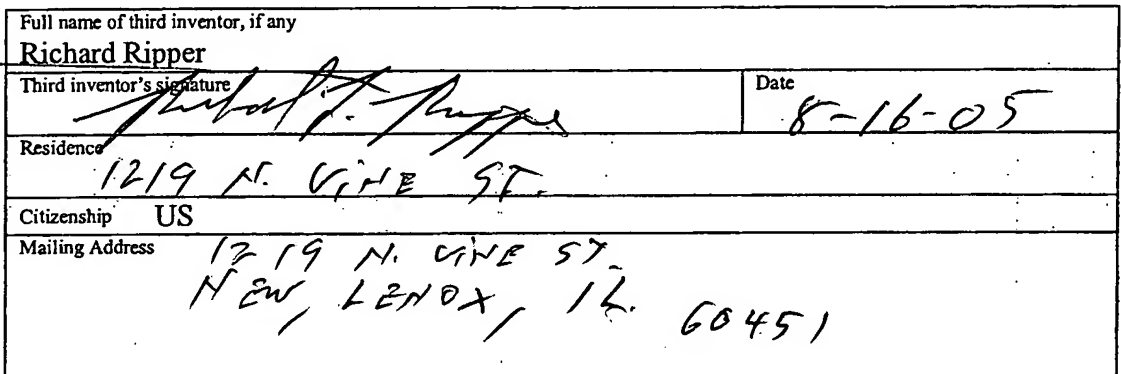 Full name of third inventor, if any
Richard Ripper
Third inventor's signature
Date
8-16-05
Residence
1219 N. VINE ST.
Citizenship US
Mailing Address 1219 N. VINE ST.
NEW, LENOX, IL. 60451